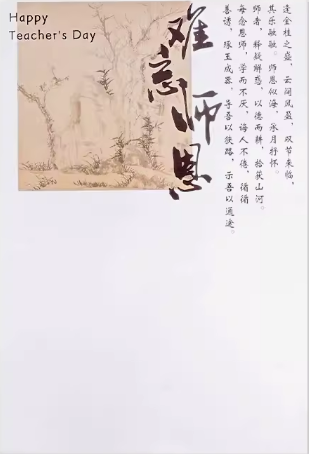 Happy
Teacher's Day
难忘
师恩
逢金桂之盛，云间风盈，双节来临，
其乐融融。师恩似海，承月抒怀。
师者，释疑解惑，以德而耕，拾获山河。
每念恩师，学而不厌，诲人不倦，循循
善诱，琢玉成器。导吾以狭路，示吾以通途。